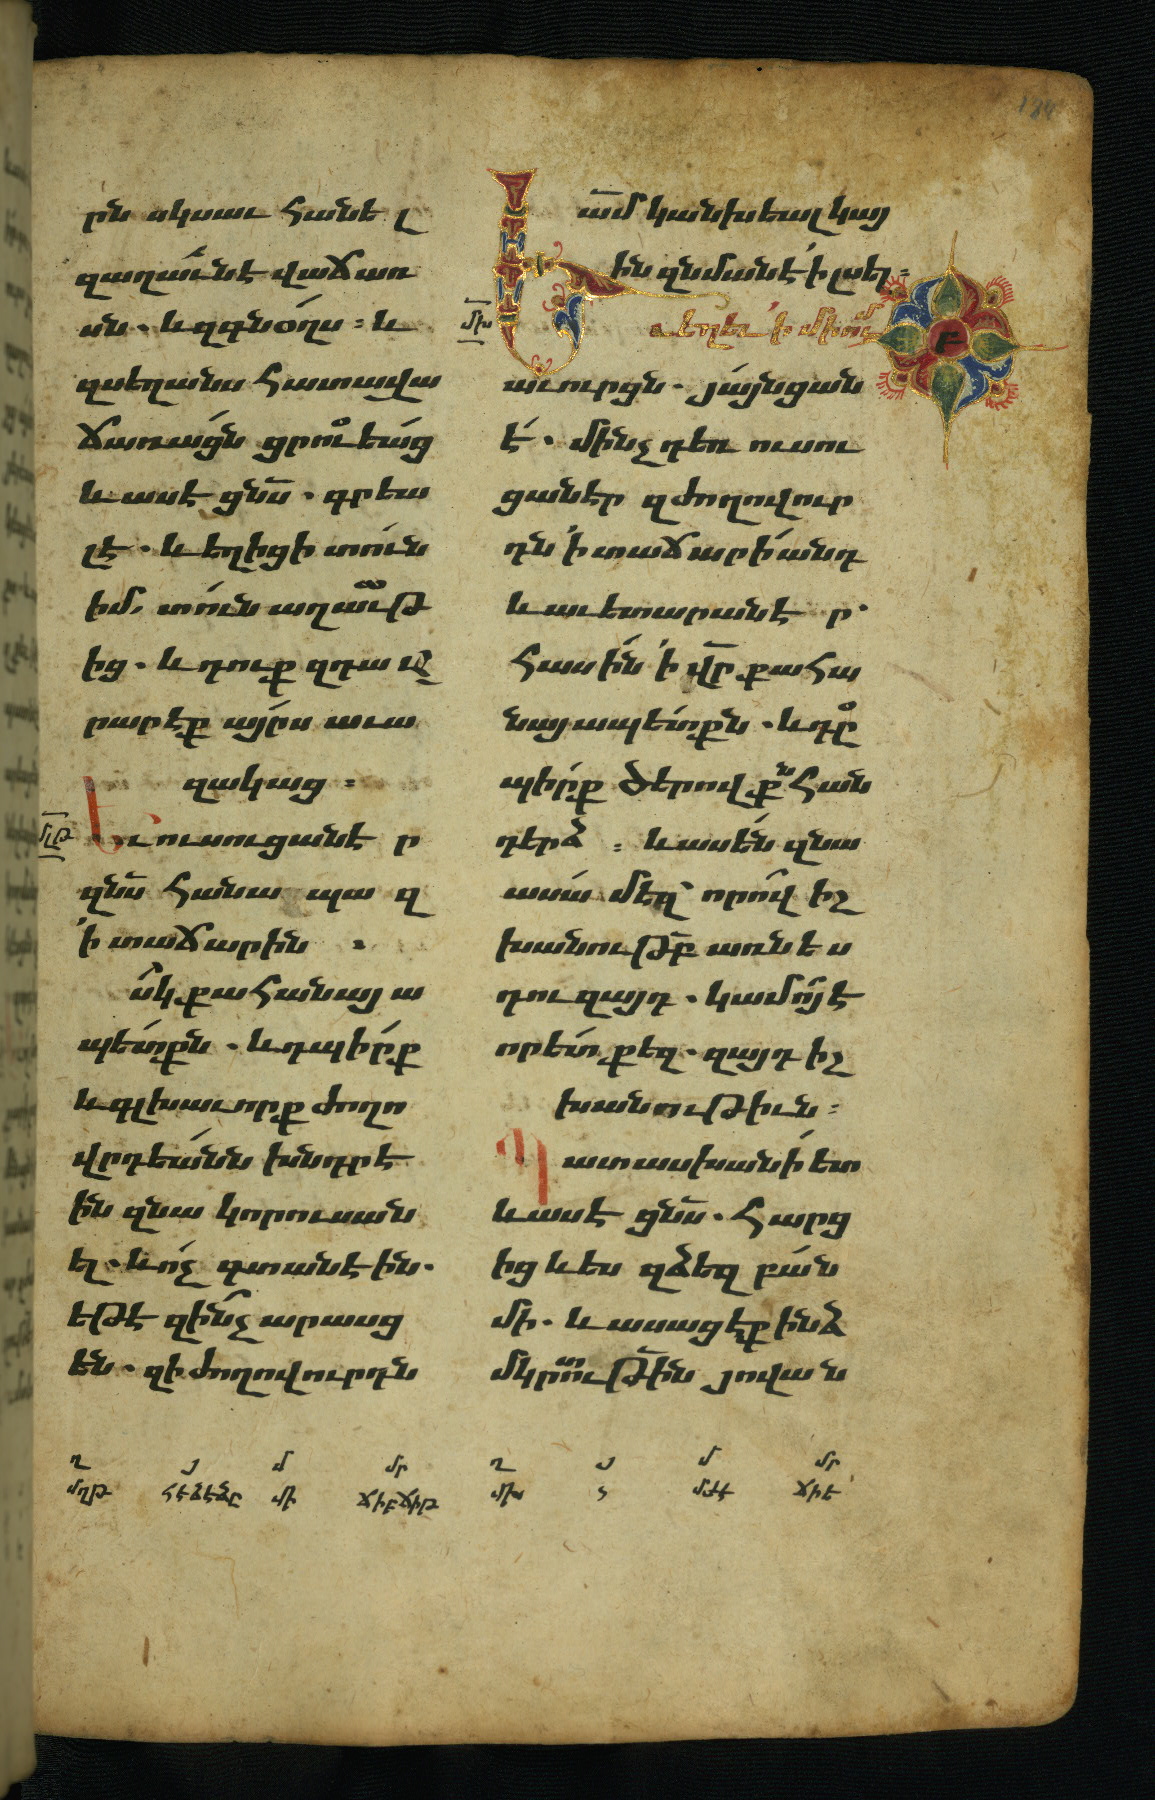 134
րն սկսաւ հանել
զաղաւնէվաճառ
սն. և զգնօղս: և
զսեղանս հատավա
ճառացն ցրուեաց
և ասէ ցն̅ս. գրեա
լէ. և եղիցի տուն
իմ, տուն աղաւթ
ից. և դուք զդա ա
րարէք այրս աւա
զակաց:
մլթ
Եւ ուսուցանէր
զն̅ս հանապազ
՚ի տաճարին .
ս̅կ քահանայա
պետքն. և դպիրք
և գլխաւորք ժողո
վրդեանն խնդրէ
ին զնա կորուսան
ել. և ոչ գտանէին.
եթէ զինչ արասց
են. զի ժողովուրդն
ա̅մ կանխեալ կայ
ին զնմանէ ՚ի լսել:
մխ
Եւ եղև ՚ի միում
Բ
աւուրցն. յայնցան
է. մինչդեռ ուսու
ցանէր զժողովուր
դն ՚ի տաճարի անդ
և աւետարանէր.
հասին ՚ի վ̅ր քահա
նայապետքն. և դը
պիրք ծերովքն հան
դերձ: և ասեն զնա
ասա մեզ՝ որով իշ
խանութ̅բ առնես
դու զայդ. կամ ոյ է
որ ետ քեզ. զայդ իշ
խանութիւն:
Պատասխանի ետ
և ասէ ցն̅ս. հարց
ից և ես զձեզ բան
մի. և ասացէք ինձ
մկրտութ̅ին յովան
ղ յ մ մր ղ յ մ մր